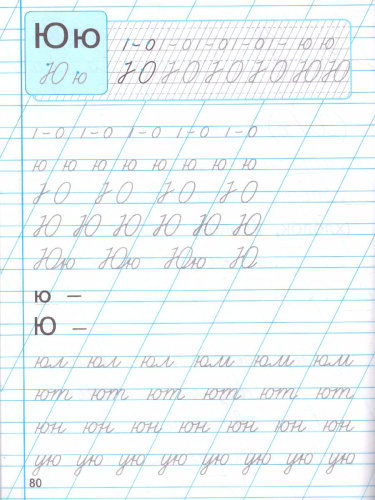 Юю
Ю ю
ı-о ı-о ı-о ı-о ı- ю ю
Ю Ю Ю Ю Ю Ю
ı-о ı-о ı-о ı-о ı-о
ю ю ю ю ю ю ю ю
Ю Ю Ю Ю
Ю Ю Ю Ю Ю Ю
Юю Юю Юю Ю
ю —
Ю —
юл юл юл юм юм юм
ют ют ют ют ют ют
юн юн юн юн юн юн юн
ую ую ую ую ую ую ую ую
80